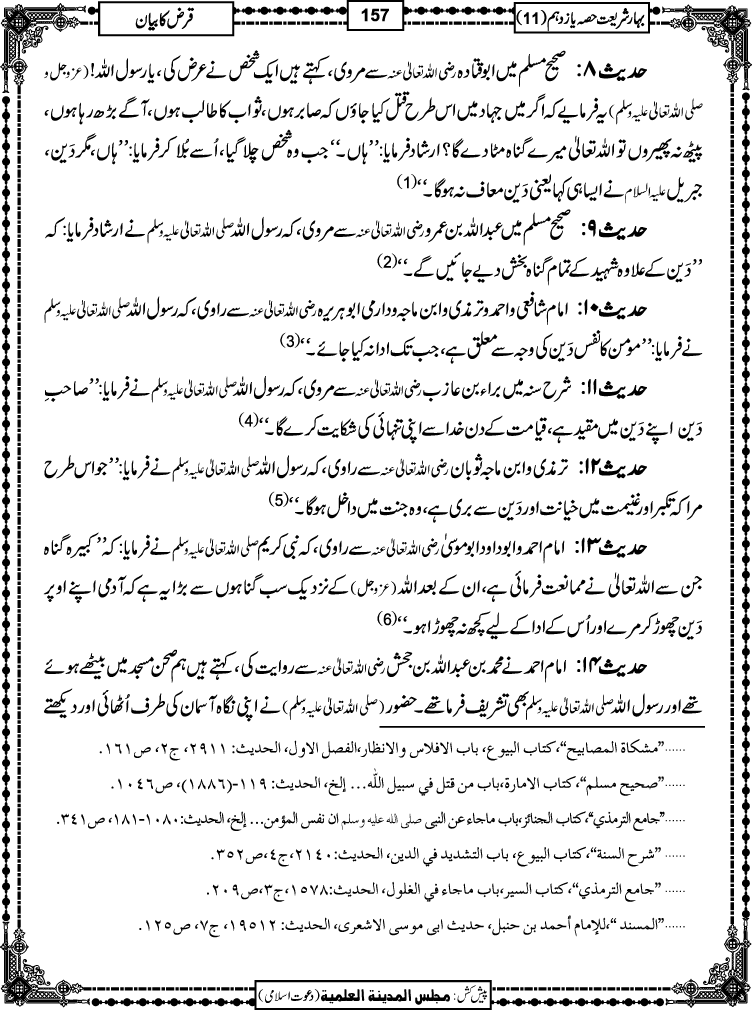 بہارِ شریعت حصہ یازدہم (11)
157
قرض کا بیان
حدیث ۸: صحیح مسلم میں ابوقتادہ رضی اللہ تعالیٰ عنہ سے مروی، کہتے ہیں ایک شخص نے عرض کی، یا رسول اللہ! (عزوجل و
صلی اللہ تعالیٰ علیہ وسلم) یہ فرمایے کہ اگر میں جہاد میں اس طرح قتل کیا جاؤں کہ صابر ہوں، ثواب کا طالب ہوں، آگے بڑھ رہا ہوں،
پیٹھ نہ پھیروں تو اللہ تعالیٰ میرے گناہ مٹا دے گا؟ ارشاد فرمایا: ’’ہاں۔‘‘ جب وہ شخص چلا گیا، اُسے بُلا کر فرمایا: ’’ہاں، مگر دَین،
جبریل علیہ السلام نے ایسا ہی کہا یعنی دَین معاف نہ ہوگا۔‘‘(1)
حدیث ۹: صحیح مسلم میں عبداللہ بن عمرو رضی اللہ تعالیٰ عنہ سے مروی، کہ رسول اللہ صلی اللہ تعالیٰ علیہ وسلم نے ارشاد فرمایا: کہ
’’دَین کے علاوہ شہید کے تمام گناہ بخش دیے جائیں گے۔‘‘(2)
حدیث ۱۰: امام شافعی و احمد و ترمذی و ابن ماجہ و دارمی ابوہریرہ رضی اللہ تعالیٰ عنہ سے راوی، کہ رسول اللہ صلی اللہ تعالیٰ علیہ وسلم
نے فرمایا: ’’مؤمن کا نفس دَین کی وجہ سے معلق ہے، جب تک ادا نہ کیا جائے۔‘‘(3)
حدیث ۱۱: شرح سنہ میں براء بن عازب رضی اللہ تعالیٰ عنہ سے مروی، کہ رسول اللہ صلی اللہ تعالیٰ علیہ وسلم نے فرمایا: ’’صاحبِ
دَین اپنے دَین میں مقید ہے، قیامت کے دن خدا سے اپنی تنہائی کی شکایت کرے گا۔‘‘(4)
حدیث ۱۲: ترمذی و ابن ماجہ ثوبان رضی اللہ تعالیٰ عنہ سے راوی، کہ رسول اللہ صلی اللہ تعالیٰ علیہ وسلم نے فرمایا: ’’جو اس طرح
مرا کہ تکبر اور غنیمت میں خیانت اور دَین سے بری ہے، وہ جنت میں داخل ہوگا۔‘‘(5)
حدیث ۱۳: امام احمد و ابوداود ابوموسیٰ رضی اللہ تعالیٰ عنہ سے راوی، کہ نبی کریم صلی اللہ تعالیٰ علیہ وسلم نے فرمایا: کہ ’’کبیرہ گناہ
جن سے اللہ تعالیٰ نے ممانعت فرمائی ہے، ان کے بعد اللہ (عزوجل) کے نزدیک سب گناہوں سے بڑا یہ ہے کہ آدمی اپنے اوپر
دَین چھوڑ کر مرے اور اُس کے ادا کے لیے کچھ نہ چھوڑا ہو۔‘‘(6)
حدیث ۱۴: امام احمد نے محمد بن عبداللہ بن جحش رضی اللہ تعالیٰ عنہ سے روایت کی، کہتے ہیں ہم صحن مسجد میں بیٹھے ہوئے
تھے اور رسول اللہ صلی اللہ تعالیٰ علیہ وسلم بھی تشریف فرما تھے۔ حضور (صلی اللہ تعالیٰ علیہ وسلم) نے اپنی نگاہ آسمان کی طرف اُٹھائی اور دیکھتے
......’’مشكاة المصابيح‘‘، كتاب البيوع، باب الافلاس والانظار، الفصل الاول، الحديث: ٢٩١١، ج٢، ص١٦١.
......’’صحيح مسلم‘‘، كتاب الامارة، باب من قتل في سبيل الله... إلخ، الحديث: ١١٩-(١٨٨٦)، ص١٠٤٦.
......’’جامع الترمذي‘‘، كتاب الجنائز، باب ماجاء عن النبى صلى الله عليه وسلم ان نفس المؤمن... إلخ، الحديث: ١٠٨٠-١٨١، ص٣٤١.
...... ’’شرح السنة‘‘، كتاب البيوع، باب التشديد في الدين، الحديث: ٢١٤٠، ج٤، ص٣٥٢.
...... ’’جامع الترمذي‘‘، كتاب السير، باب ماجاء في الغلول، الحديث: ١٥٧٨، ج٣، ص٢٠٩.
......’’المسند‘‘، للإمام أحمد بن حنبل، حديث ابى موسى الاشعرى، الحديث: ١٩٥١٢، ج٧، ص١٢٥.
پیش کش: مجلس المدينة العلمية (دعوت اسلامی)